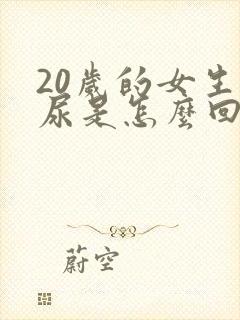 20歲的女生
尿是怎麼回
蔚空